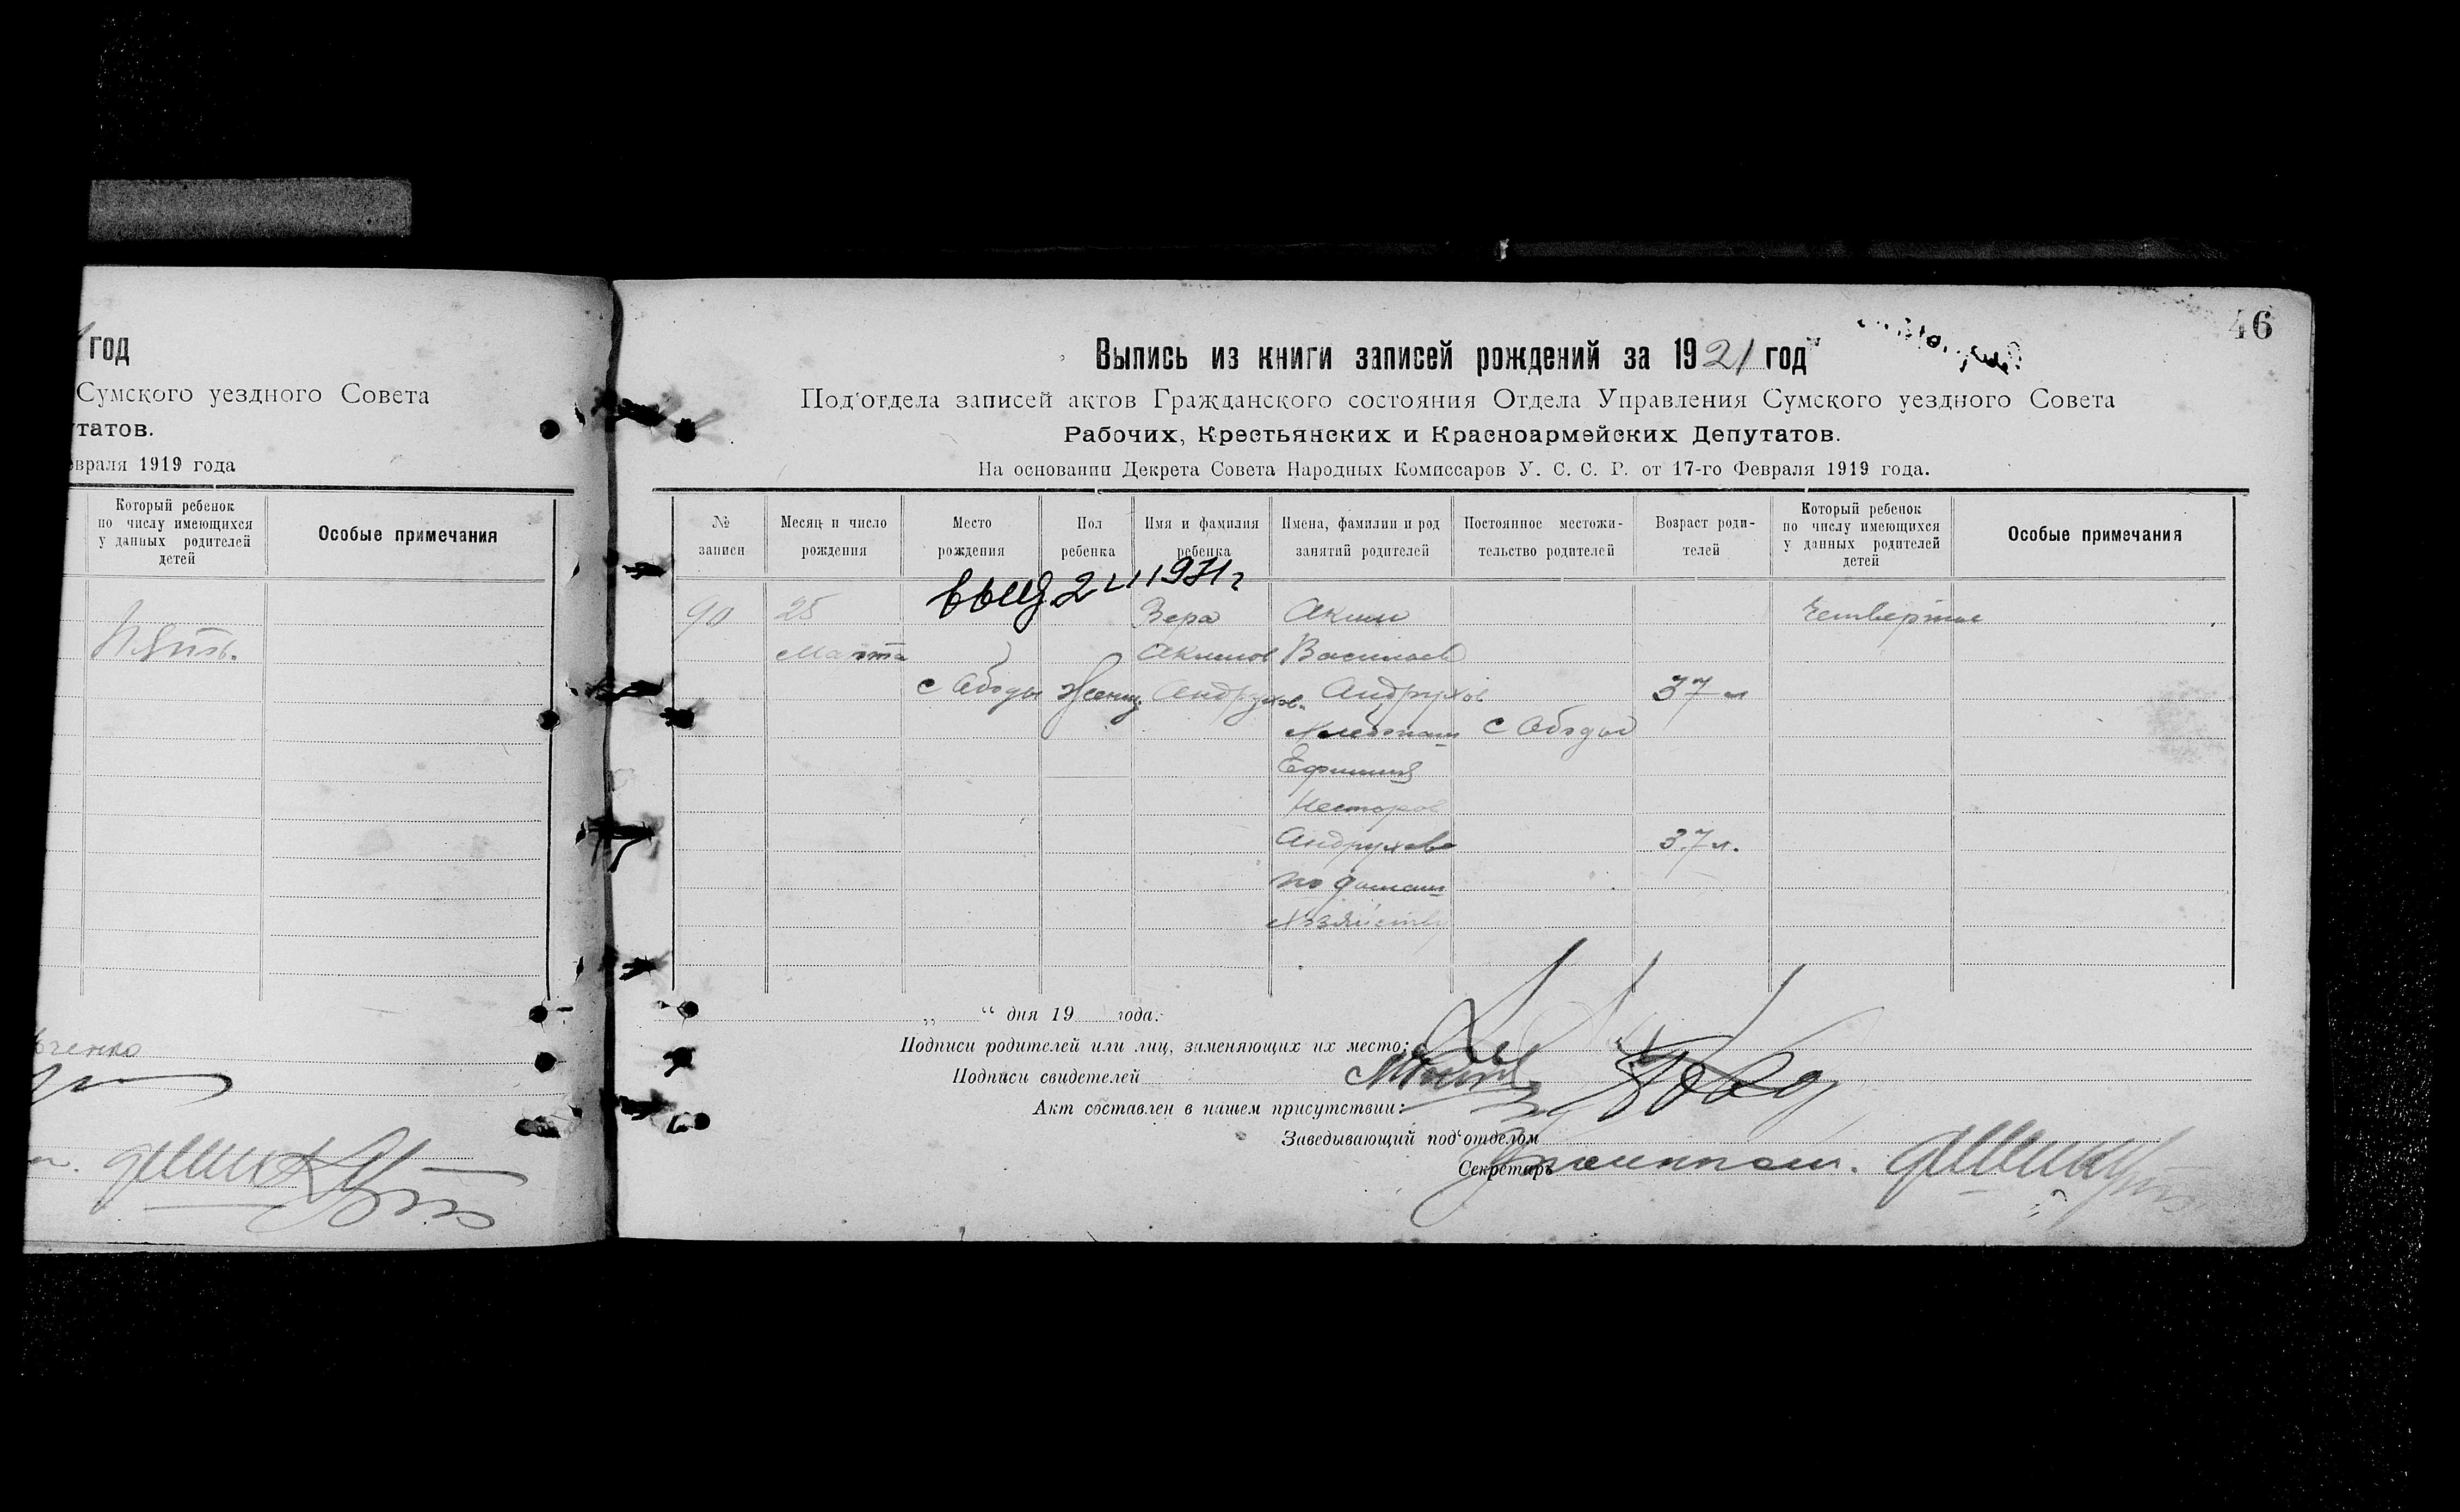 год
Сумского уездного Совета
татов.
враля 1919 года
Который ребенок
по числу имеющихся
у данных родителей
детей
Особые примечания
Пять.
46
Выпись из книги записей рождений за 1921 год
Под'отдела записей актов Гражданского состояния Отдела Управления Сумского уездного Совета
Рабочих, Крестьянских и Красноармейских Депутатов.
На основании Декрета Совета Народных Комиссаров У. С. С. Р. от 17-го Февраля 1919 года.
№ записи
Месяц и число рождения
Место рождения
Пол ребенка
Имя и фамилия ребенка
Имена, фамилии и род занятий родителей
Постоянное местожительство родителей
Возраст родителей
Который ребенок
по числу имеющихся
у данных родителей
детей
Особые примечания
90
25
Марта
с Ободы
Женщ.
Вера
Акимов
Андрухов.
Аким
Васильев
Андрухов
Хлебопаш
Ефимия
Несторов
Андрухова
по домаш
хозяйству
с Ободы
37 л
37 л.
Четвертое
„ “ дня 19 года.
Подписи родителей или лиц, заменяющих их место:
Подписи свидетелей
Акт составлен в нашем присутствии:
Заведывающий под'отделом
Секретарь